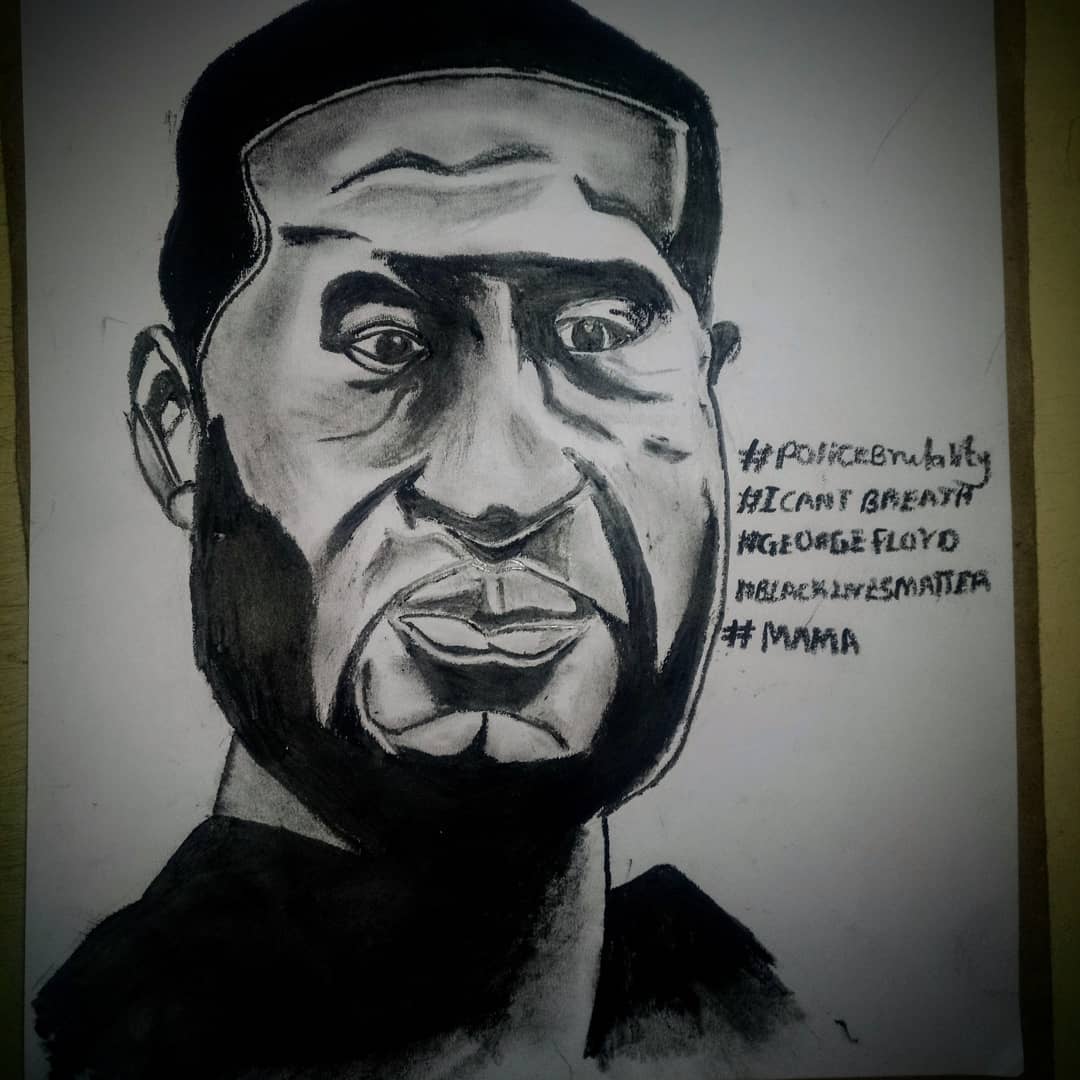 #POLICEBrutality
#ICANT BREATH
#GEORGE FLOYD
#BLACKLIVESMATTER
# MAMA